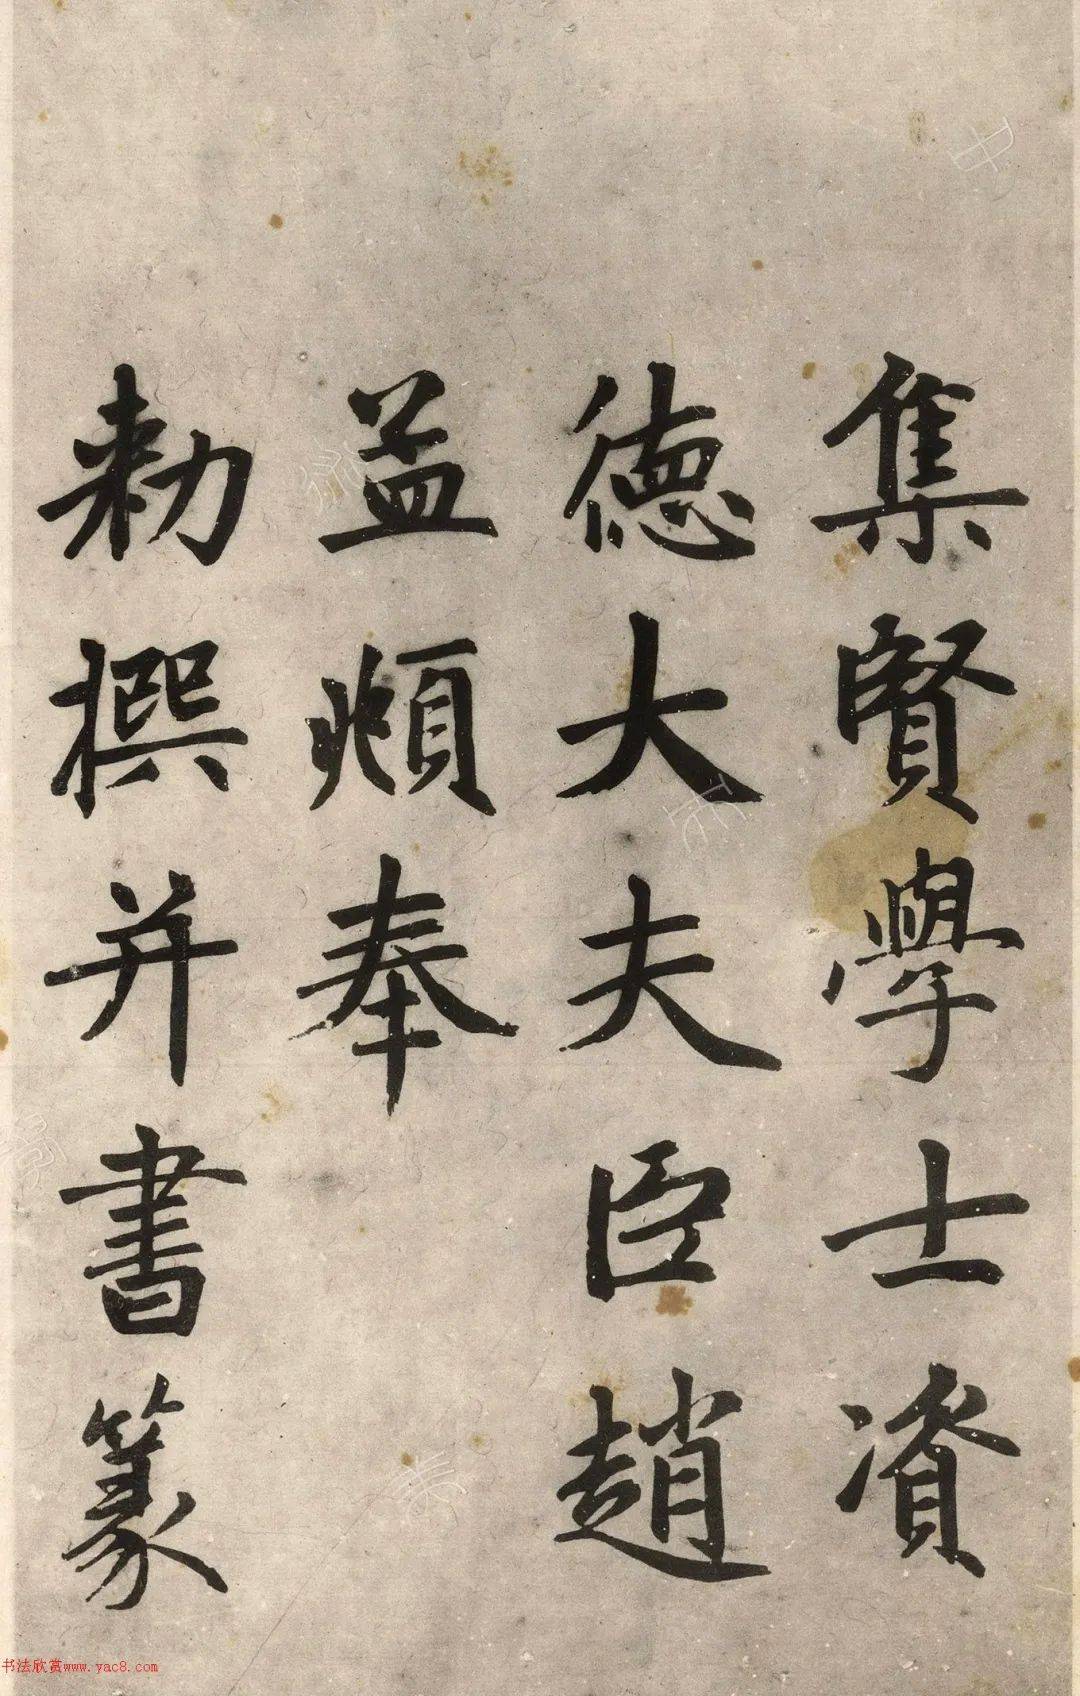 集賢學士資
德大夫臣趙
孟頫奉
勑撰并書篆
书法欣赏www.yac8.com